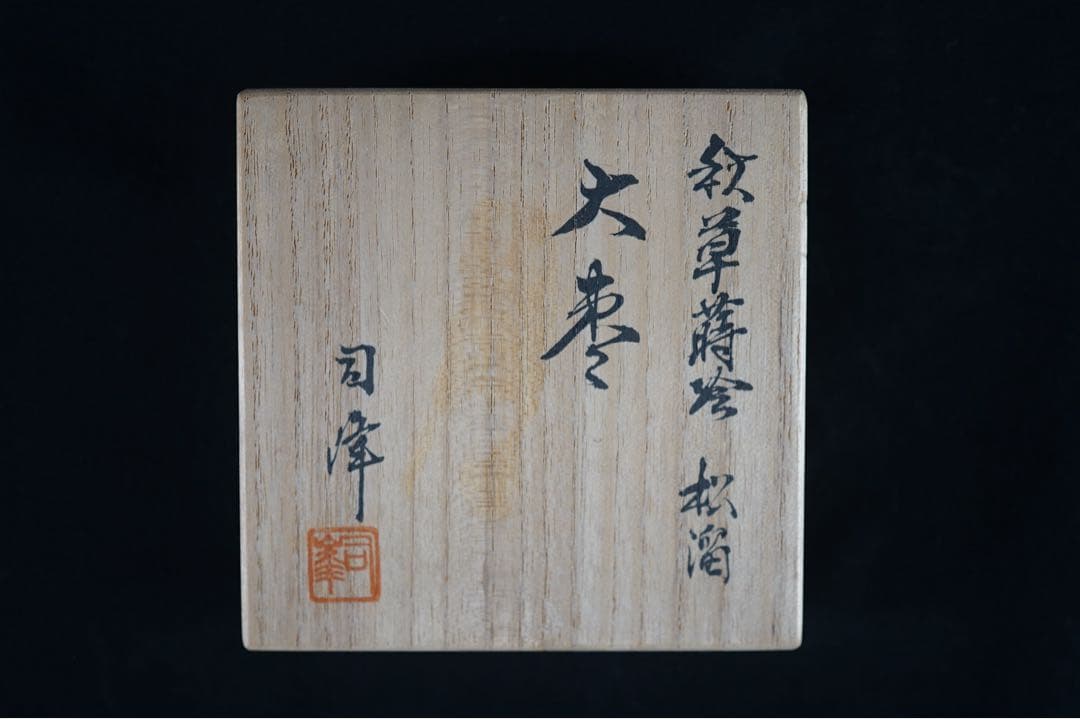 秋草蒔絵 松溜
大棗
司峰
司峯